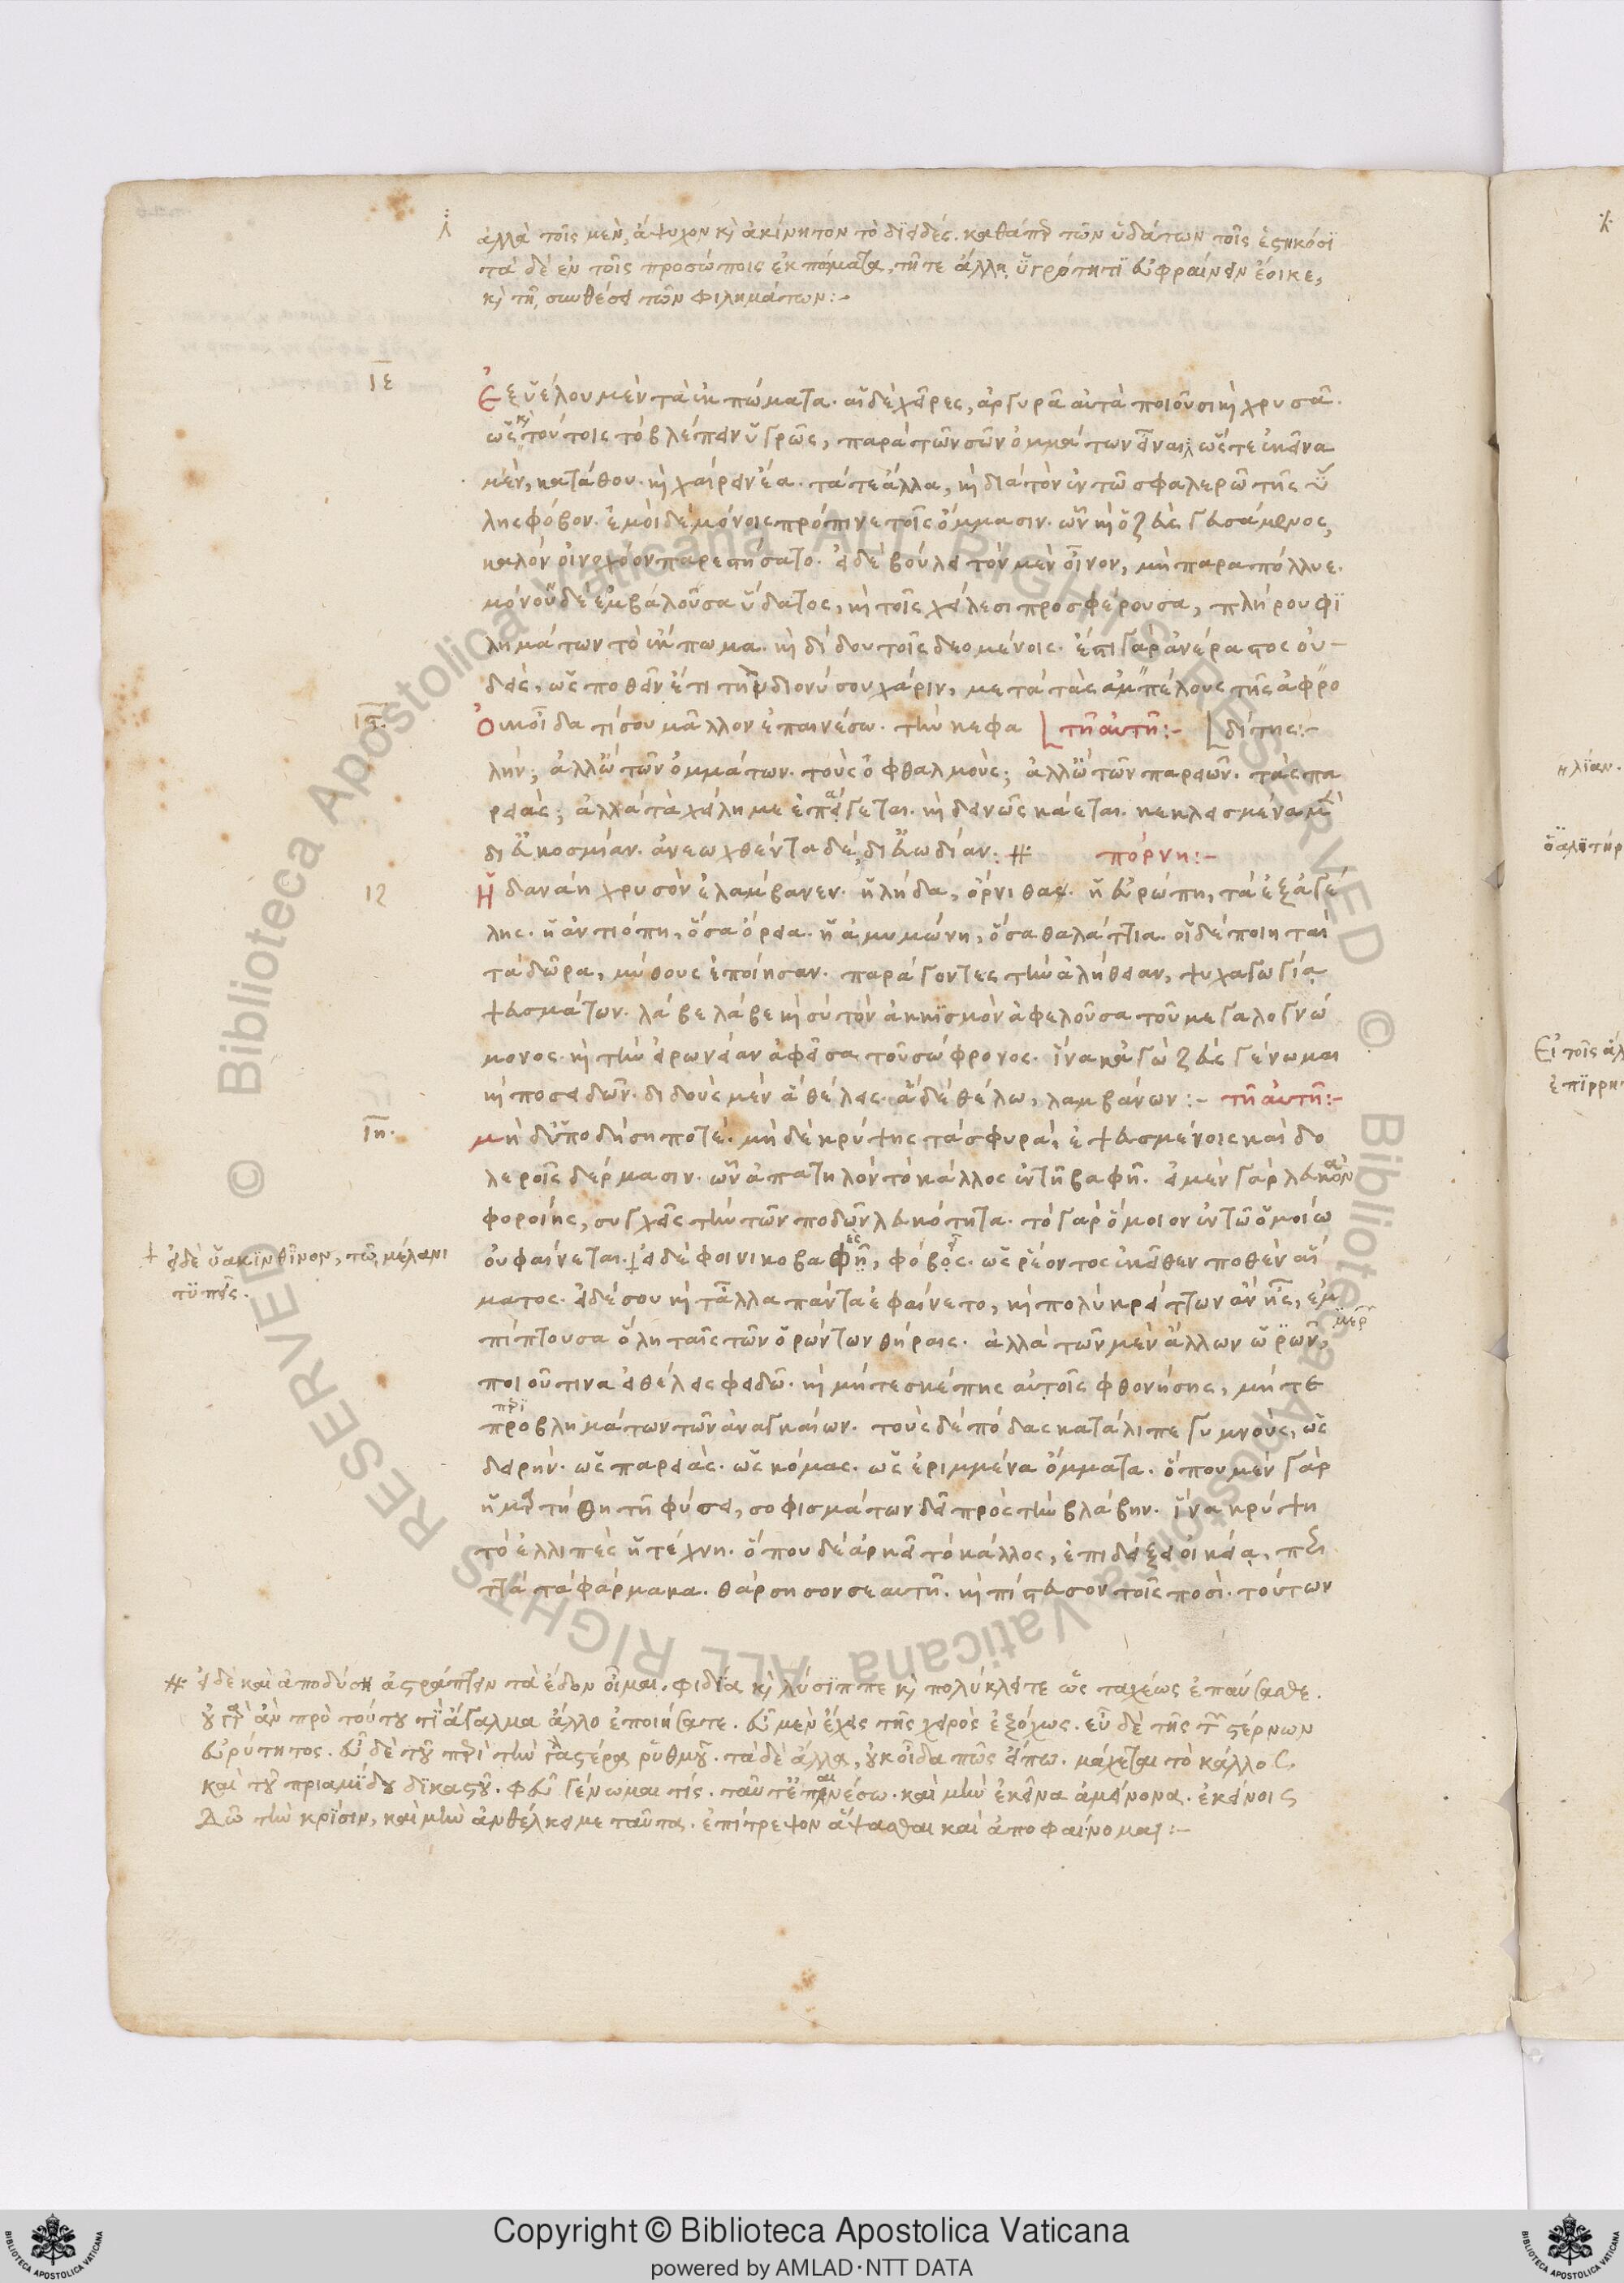 ἀλλὰ τοῖς μὲν, ἄψυχον κ̀ ἀκίνητον τὸ διειδές. καθάπερ τῶν ὑδάτων τοῖς ἑστηκόσϊ
τὰ δὲ ἐν τοῖς προσώποις ἐκπόματα, τῆτε ἄλλη ὑγρότητϊ εὐφραίνειν ἔοικε,
κ̀ τῆ συνθέσει τῶν φιλημάτων:-
ιε
Ἐξ ὑέλου μὲν τὰ ἐκπώματα. αἱ δὲ χεῖρες, ἀργυρᾶ αὐτὰ ποιοῦσι κ̀ χρυσᾶ.
ὡς κ̀ τούτοις τὸ βλέπειν ὑγρῶς, παρὰ τῶν σῶν ὀμμάτων εἶναι, ὥστε ἐκεῖνα
μὲν, κατάθου. κ̀ χαίρειν ἔα. τά τε ἄλλα, κ̀ διὰ τὸν ἐν τῶ σφαλερῶ τῆς ὕ
λης φόβον. ἐμοὶ δὲ μόνοις πρόπινε τοῖς ὄμμασιν. ὧν κ̀ ὁ ζεὺς γευσάμενος,
καλὸν οἰνοχόον παρεστήσατο. εἰ δὲ βούλει τὸν μὲν οἶνον, μὴ παραπόλλυε.
μόνου δὲ ἐμβάλουσα ὕδατος, κ̀ τοῖς χείλεσι προσφέρουσα, πλήρου φϊ
λημάτων τὸ ἔκπωμα. κ̀ δίδου τοῖς δεομένοις. ἔστι γὰρ ἀνέραστος οὐ-
δεὶς, ὡς ποθεῖν ἔτι τὴν διονύσου χάριν, μετὰ τὰς ἀμπέλους τῆς ἀφρο
ιϛ.
Οὐκ οἶδα τί σου μᾶλλον ἐπαινέσω. τὴν κεφα [τῆ αὐτῆ:- [δίτης:-
λήν; ἀλλ' ὢ τῶν ὀμμάτων. τοὺς ὀφθαλμούς; ἀλλ' ὢ τῶν παρειῶν. τὰς πα
ρειάς; ἀλλὰ τὰ χείλη με ἐπάγεται. κ̀ δεινῶς κάεται. κεκλεισμένα μ̀
δι' εὐκοσμίαν. ἀνεωχθέντα δὲ, δι' εὐωδίαν: # πόρνη:-
ιζ
Ἡ δανάη χρυσὸν ἐλάμβανεν. ἡ λήδα, ὄρνιθας. ἡ εὐρώπη, τὰ ἐξ ἀγέ
λης. ἡ ἀντιόπη, ὅσα ὄρεια. ἡ ἀμυμώνη, ὅσα θαλάττια. οἱ δὲ ποιηταὶ
τὰ δῶρα, μύθους ἐποίησαν. παράγοντες τὴν ἀλήθειαν, ψυχαγωγία
ψευσμάτων. λάβε λάβε κ̀ σὺ τὸν ἀκκϊσμὸν ἀφελοῦσα τοῦ μεγαλογνώ
μονος. κ̀ τὴν εἰρωνείαν ἀφεῖσα τοῦ σώφρονος. ἵνα κἀγὼ ζεὺς γένωμαι
κ̀ ποσειδῶν. διδοὺς μὲν ἃ θέλεις. ἃ δὲ θέλω, λαμβάνων:- τῆ αὐτῆ:-
ιη.
μὴ δ' ὑποδήση ποτέ. μὴ δὲ κρύψης τὰ σφυρὰ, ἐψευσμένοις καὶ δο
λεροῖς δέρμασιν. ὧν ἀπατηλὸν τὸ κάλλος ἐν τῆ βαφῆ. εἰ μὲν γὰρ λευκὸν
φοροίης, συγχεῖς τὴν τῶν ποδῶν λευκότητα. τὸ γὰρ ὅμοιον ἐν τῶ ὁμοίω
οὐ φαίνεται. εἰ δὲ φοινικοβαφῆ, φόβος. ὡς ῥέοντος ἐκεῖθεν ποθὲν αἵ
+ εἰ δὲ ὑακίνθϊνον, τῶ μέλανι
τϋπεῖς.
ματος. εἰ δέ σου κ̀ τἄλλα πάντα ἐφαίνετο, κ̀ πολὺ κρείττων ἂν ἦς, ἐμ
πίπτουσα ὅλη ταῖς τῶν ὁρώντων θήραις. ἀλλὰ τῶν μὲν ἄλλων ὡρῶν,
ποιοῦ τινα εἰ θέλεις φειδώ. κ̀ μήτε σκέπης αὐτοῖς φθονήσης, μήτε
προβλημάτων τῶν ἀναγκαίων. τοὺς δὲ πόδας κατάλιπε γυμνοὺς, ὡς
δειρήν. ὡς παρειάς. ὡς κόμας. ὡς ἐριμμένα ὄμματα. ὅπου μὲν γὰρ
ἡμαρτήθη τῆ φύσει, σοφισμάτων δεῖ πρὸς τὴν βλάβην. ἵνα κρύψη
τὸ ἐλλιπὲς ἡ τέχνη. ὅπου δὲ ἀρκεῖ τὸ κάλλος, ἐπιδείξει οἰκεία, περι
ττὰ τὰ φάρμακα. θάρσησον σεαυτῆ. κ̀ πίστευσον τοῖς ποσί. τούτων
# εἰ δὲ καὶ ἀποδύση ἀστράπτειν τὰ ἔδον οἶμαι. φιδΐα κ̀ λύσϊππε κ̀ πολύκλειτε ὡς ταχέως ἐπαύσασθε.
οὐ γὰρ ἂν πρὸ τούτου τϊ ἄγαλμα ἄλλο ἐποιήσατε. εὖ μὲν ἔχεις τῆς χειρὸς ἐξόχως. εὖ δὲ τῆς τῶν στέρνων
εὐρύτητος. εὖ δὲ τοῦ περὶ τὴν γαστέρα ῥυθμοῦ. τὰ δὲ ἄλλα, οὐκ οἶδα πῶς εἴπω. μάχεται τὸ κάλλος
καὶ τοῦ πριαμίδου δϊκαστοῦ. φεῦ γένωμαι τίς. ταῦτ' ἐπαινέσω. καὶ μὴν ἐκεῖνα ἀμείνονα. ἐκείνοις
Δῶ τὴν κρίσιν, καὶ μὴν ἀνθέλκει με ταῦτα. ἐπίτρεψον ἅψασθαι καὶ ἀποφαίνομαι:-
ηλΐαν.
Εἰ τοῖς
Copyright © Biblioteca Apostolica Vaticana
powered by AMLAD・NTT DATA
© Biblioteca Apostolica Vaticana ALL RIGHTS RESERVED © Biblioteca Apostolica Vaticana ALL RIGHTS RESERVED
BIBLIOTECA APOSTOLICA VATICANA
BIBLIOTECA APOSTOLICA VATICANA